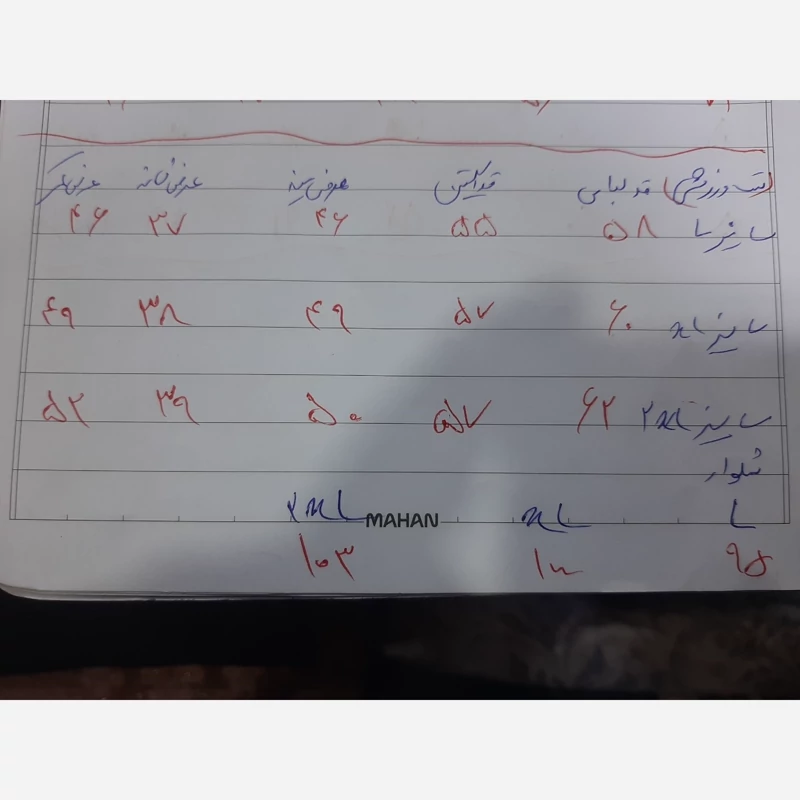 (ست ورزشی) قد لباس قد آستین عرض سینه عرض شانه عرض کمر
سایز L ۵۸ ۵۵ ۴۶ ۳۷ ۴۶
سایز xL ۶۰ ۵۷ ۴۹ ۳۸ ۴۹
سایز ۲xL ۶۲ ۵۷ ۵۰ ۳۹ ۵۲
شلوار
L xL ۲xL
MAHAN
۹۵ ۱۰۳